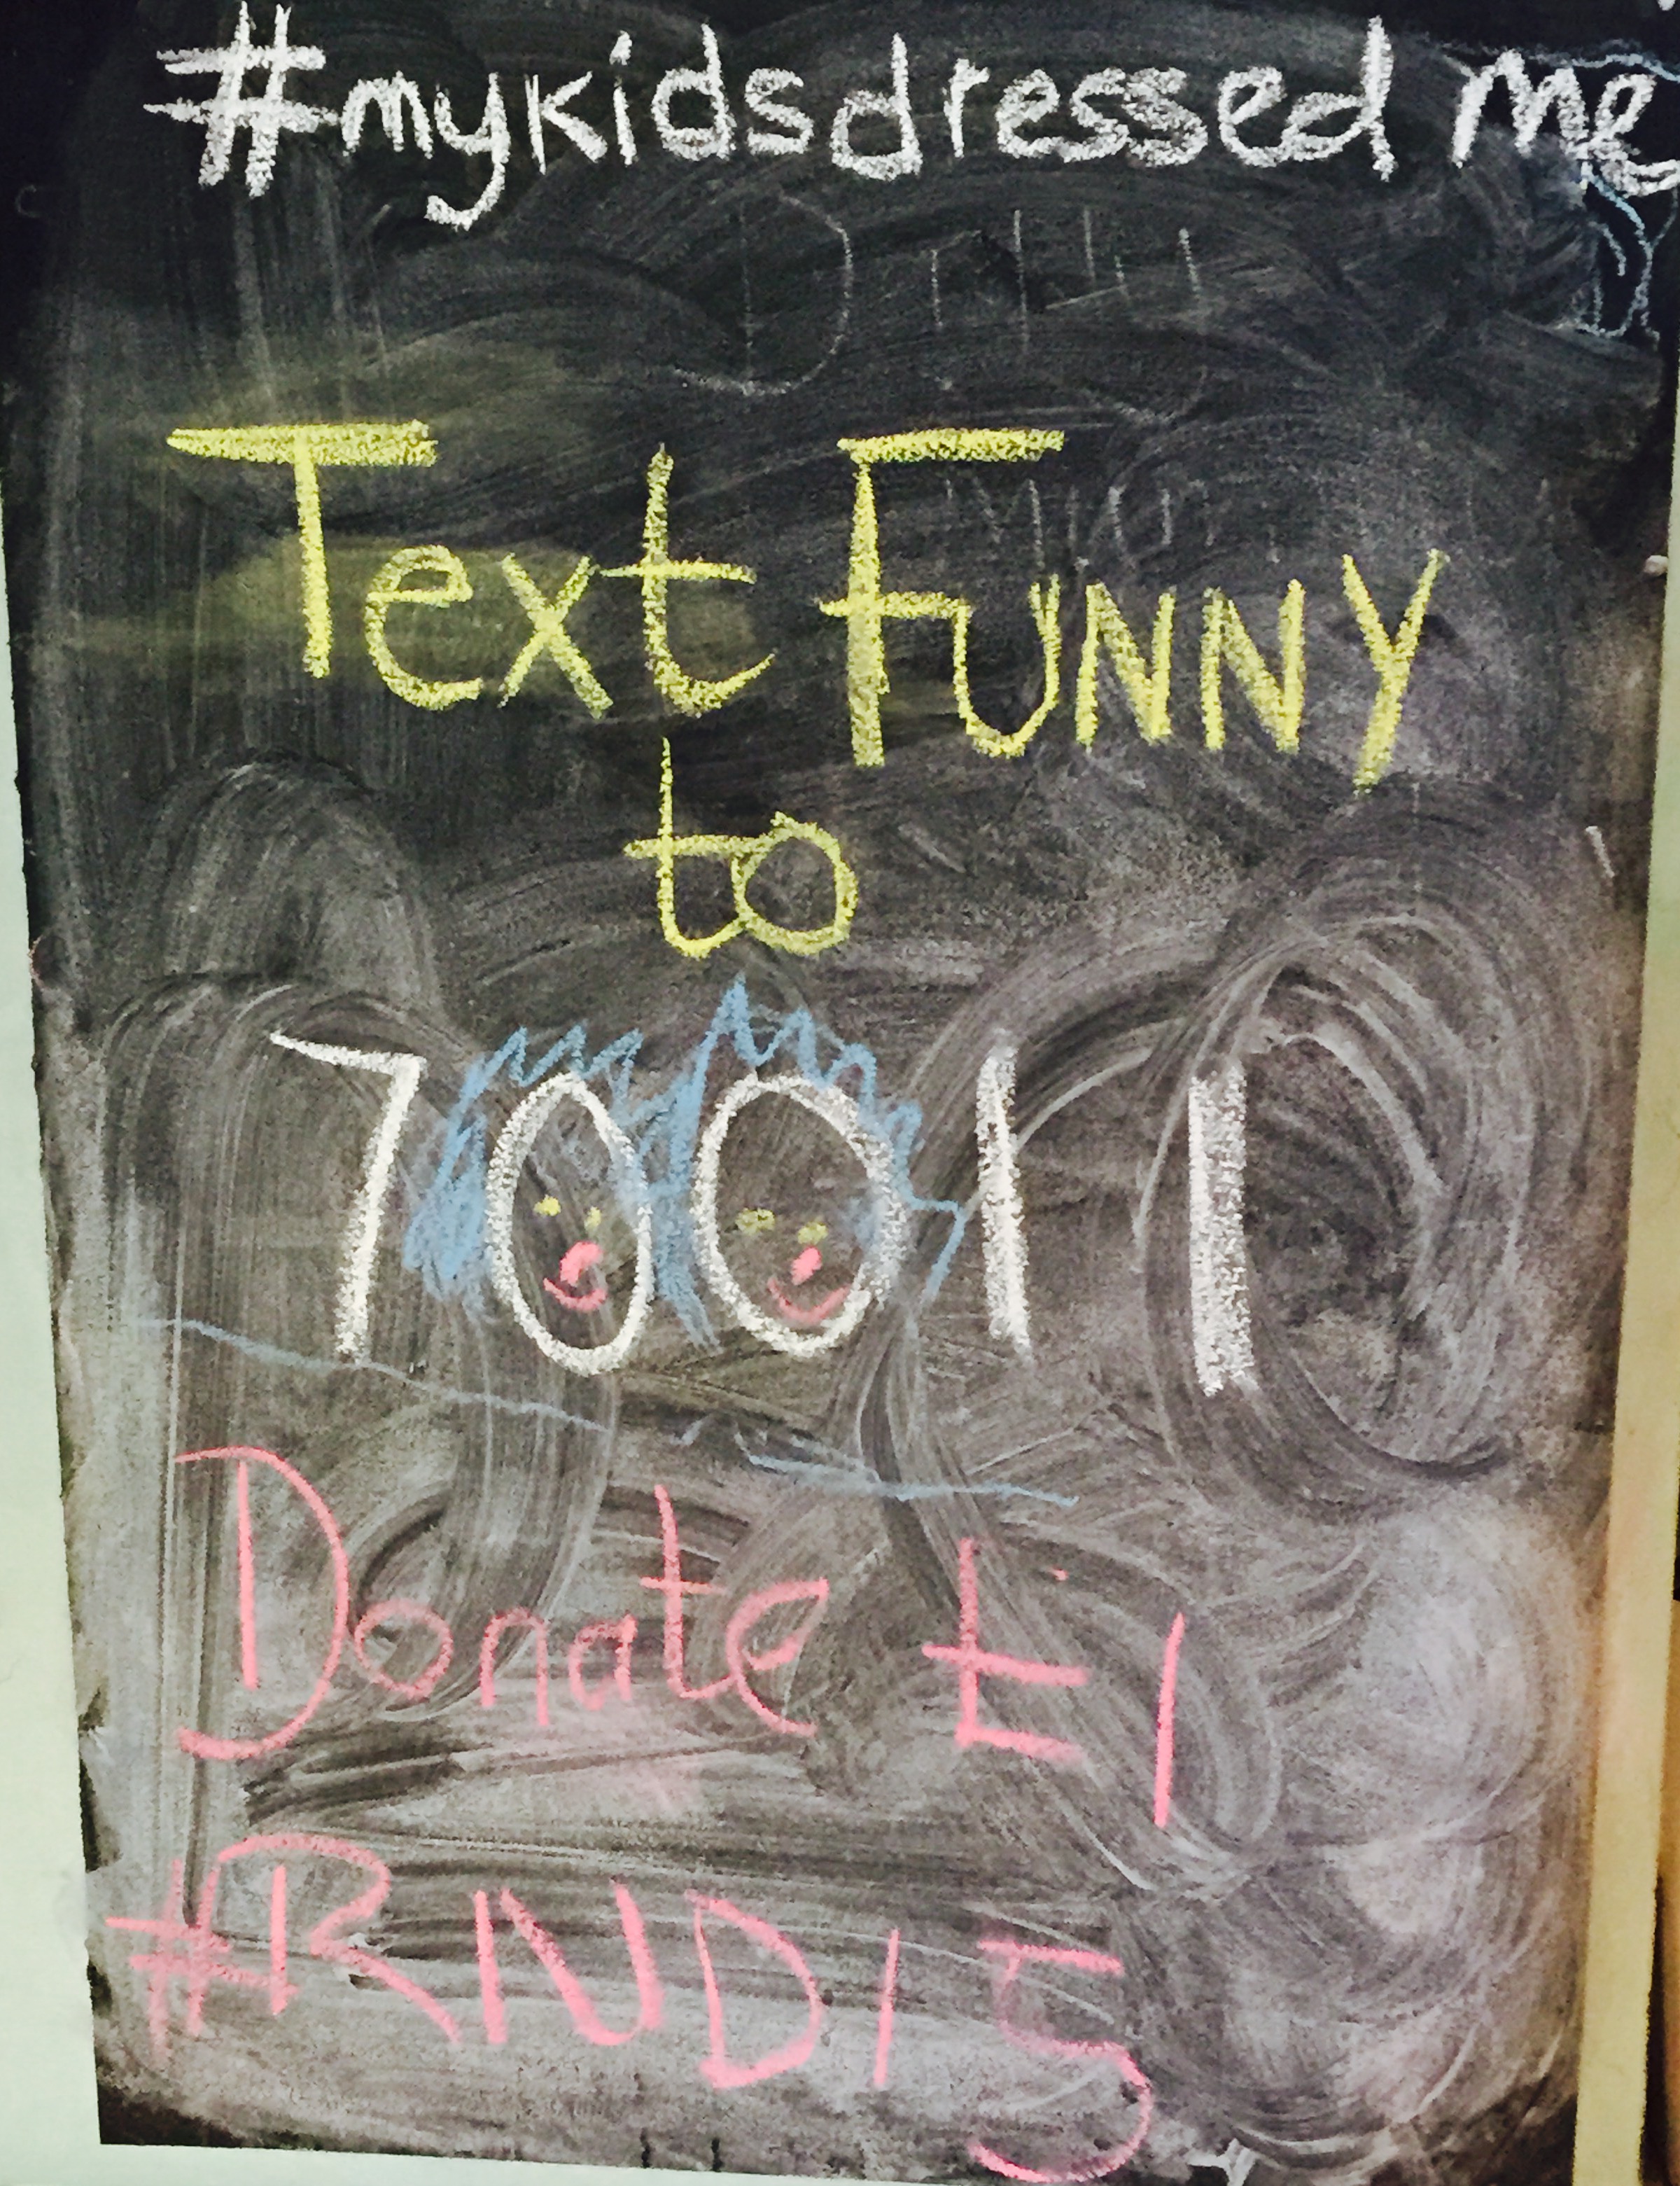 #mykidsdressed me
Text FUNNY
to
70011
Donate £1
#RND15